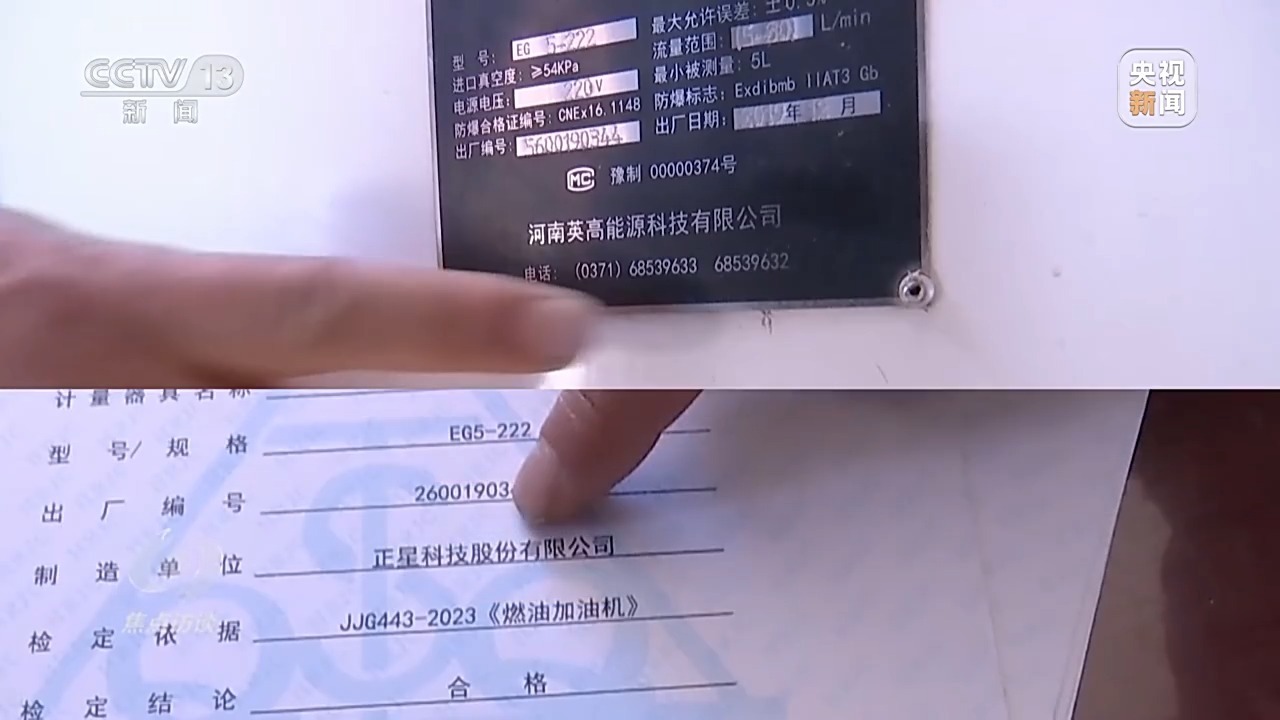 CCTV 13
新闻
央视
新闻
型号: EG 5-222
进口真空度: ≥54KPa
电源电压: 220V
防爆合格证编号: CNEx16.1148
出厂编号: 5600190344
最大允许误差: ±0.3%
流量范围: (5-80) L/min
最小被测量: 5L
防爆标志: Exdibmb IIAT3 Gb
出厂日期: 年 月
MC 豫制 00000374号
河南英高能源科技有限公司
电话: (0371) 68539633 68539632
计量器具名称
型号/规格 EG5-222
出厂编号 26001903
制造单位 正星科技股份有限公司
检定依据 JJG443-2023《燃油加油机》
检定结论 合格
焦点访谈